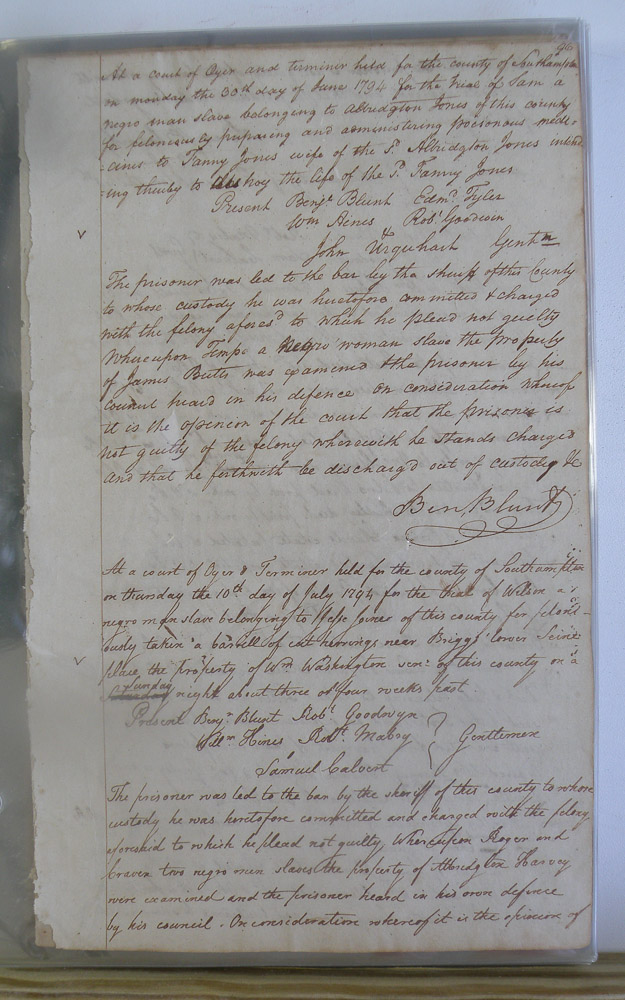 96
At a court of Oyer and terminer held for the county of Southampton
on monday the 30th day of June 1794 for the trial of Sam a
negro man slave belonging to Albridgton Jones of this county
for feloniously preparing and administering poisonous medi-
cines to Fanny Jones wife of the Sd. Albridgton Jones intend
=ing thereby to destroy the life of the Sd. Fanny Jones
Present Benja. Blunt Edmd. Tyler
Wm Hines Robt Goodwin
&
John Urquehart Gentm
The prisoner was led to the bar by the sheriff of this County
to whose custody he was heretofore committed & charged
with the felony aforesd to which he plead not guilty
Whereupon Tempe a Negro woman slave the property
of James Butts was examined & the prisoner by his
council heard in his defence on consideration whereof
it is the opinion of the court that the prisoner is
not guilty of the felony wherewith he stands charged
and that he forthwith be discharg'd out of custody &c
Ben, Blunt
At a court of Oyer & Terminer held for the county of Southampton
on thursday the 10th day of July 1794 for the trial of Wilson a
negro man slave belonging to Jesse Joiner of this county for feloni-
ously taken a barrell of cut herrings near Briggs' lower Seine
place, the property of Wm Washington senr. of this county on a
sunday night about three or four weeks past
Present Benjn. Blunt Robt. Goodwyn
Willm Hines Robt. Mabry } Gentlemen
&
Samuel Calvert
The prisoner was led to the bar by the sheriff of this county to whose
custody he was heretofore committed and charged with the felony
aforesaid to which he plead not guilty, Whereupon Roger and
Craven two negro men slaves the property of Albridgton Harvey
were examined and the prisoner heard in his own defence
by his council. On consideration whereof it is the opinion of